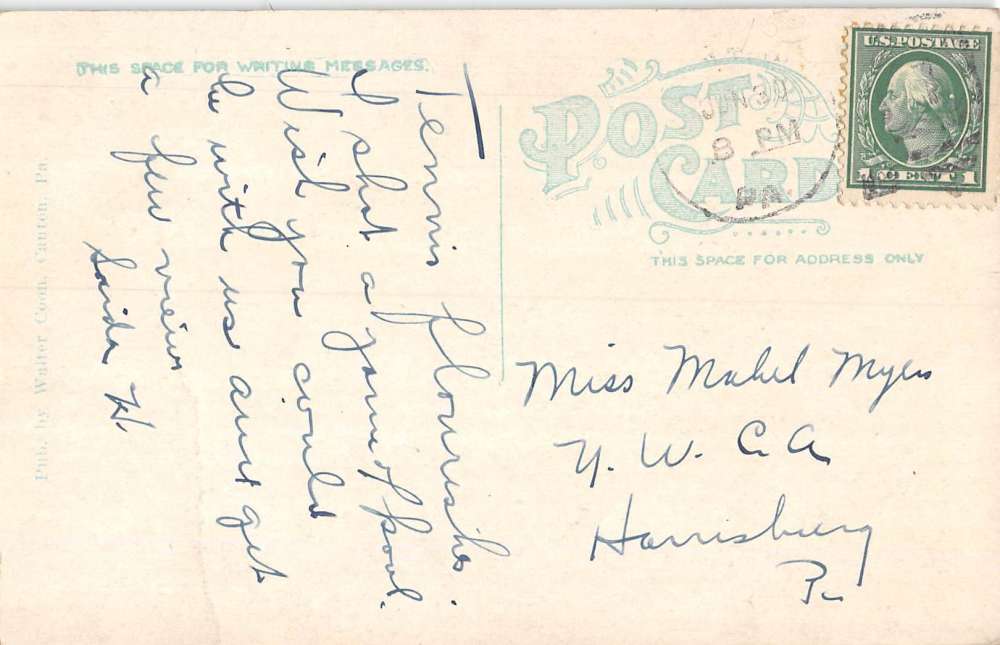 THIS SPACE FOR WRITING MESSAGES.
POST CARD
U.S. POSTAGE
1 CENT 1
JUN 30
8 PM
PA.
THIS SPACE FOR ADDRESS ONLY
Tennis flourishes.
I shot a game of pool.
Wish you could
be with us and get
a few views
Saida H.
Miss Mabel Myers
Y. W. C. A
Harrisburg
Pa
Pub. by Walter Coon, Canton, Pa